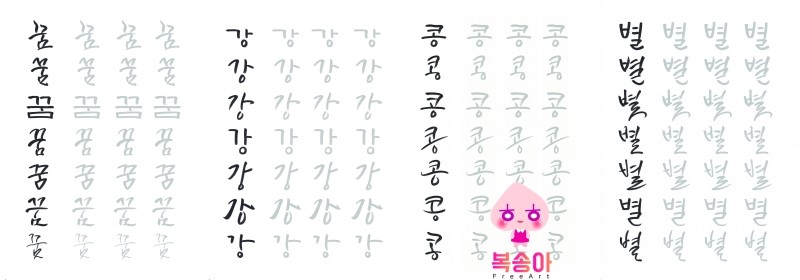 꿈 꿈 꿈 꿈
꿈 꿈 꿈 꿈
꿈 꿈 꿈 꿈
꿈 꿈 꿈 꿈
꿈 꿈 꿈 꿈
꿈 꿈 꿈 꿈
꿈 꿈 꿈 꿈
강 강 강 강
강 강 강 강
강 강 강 강
강 강 강 강
강 강 강 강
강 강 강 강
강 강 강 강
콩 콩 콩 콩
콩 콩 콩 콩
콩 콩 콩 콩
콩 콩 콩 콩
콩 콩 콩 콩
콩 콩 콩
콩 콩 콩
ㅎ ㅎ
복송아
FreeArt
별 별 별 별
별 별 별 별
별 별 별 별
별 별 별 별
별 별 별 별
별 별 별 별
별 별 별 별